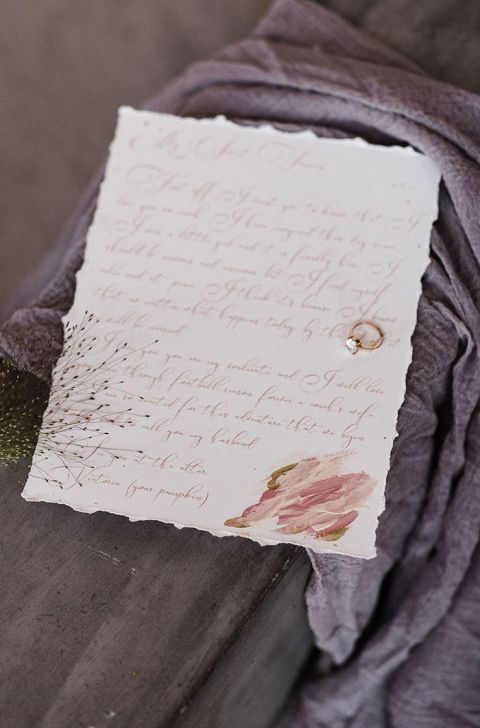 First off, I want you to know that I
love you so much. I have imagined this day since
I was a little girl and it is finally here. I
should be nervous and anxious but I find myself
calm and at peace. I think it's because I know
that no matter what happens today, by the
will be married.
I love you, you are my soulmate and I will love
you through football season forever
so excited for this adventure that we begin
call you my husband.
at the altar.
Victoria (your pumpkin)